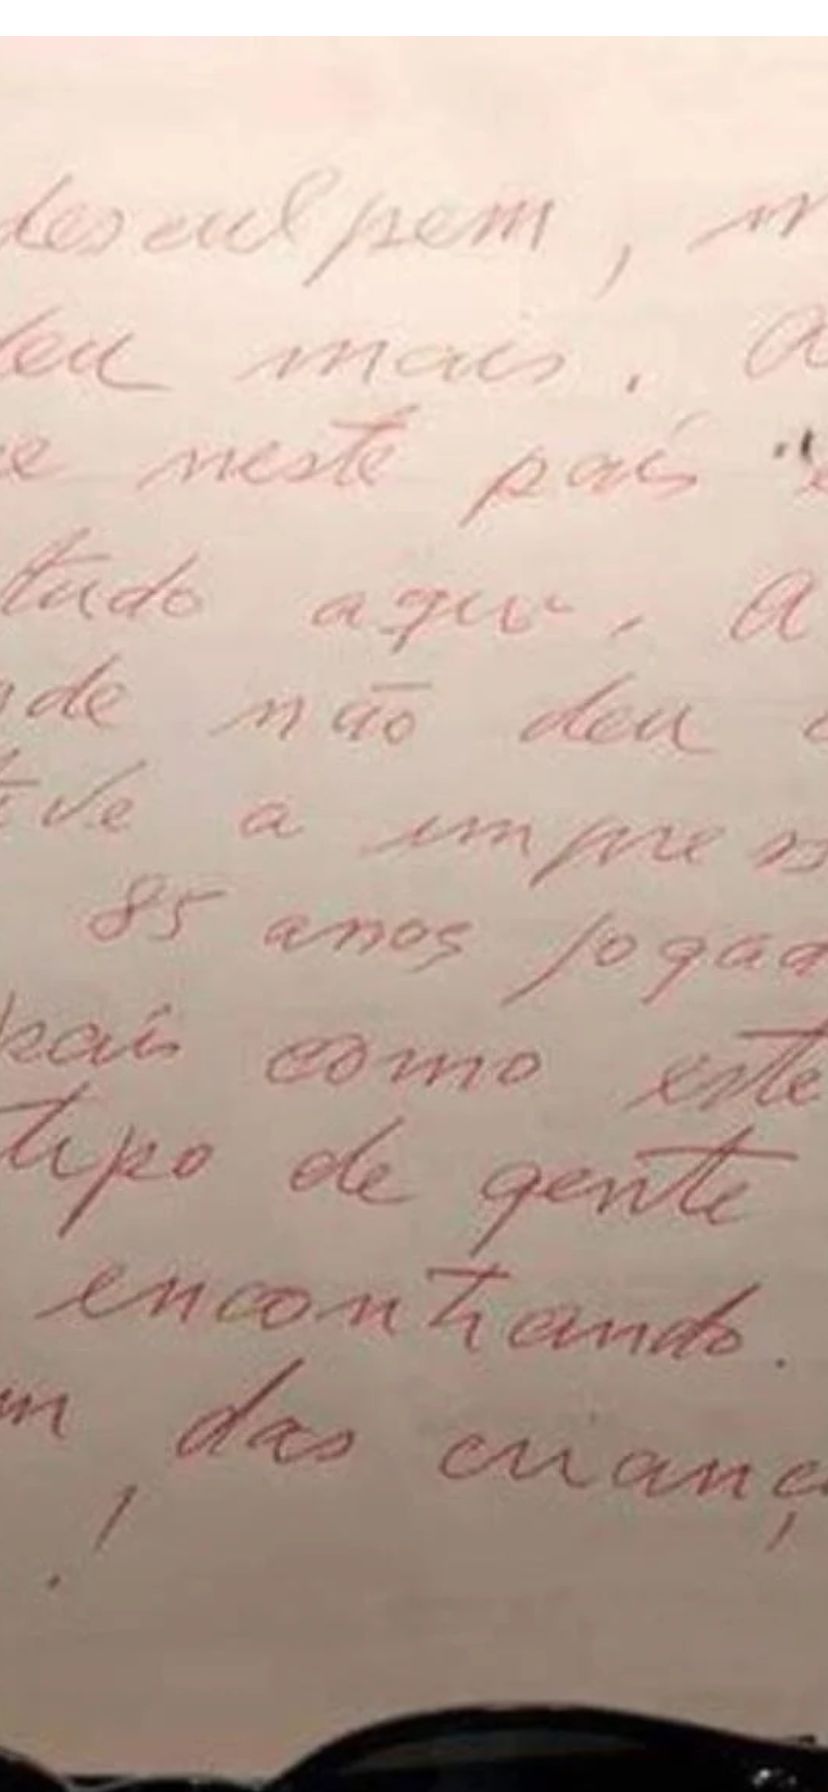 desculpem, 
deu mais. A
neste país "
tudo aqui. A
de não deu
tive a impress
85 anos jogad
país como este
tipo de gente
encontrando.
m das crianç
!